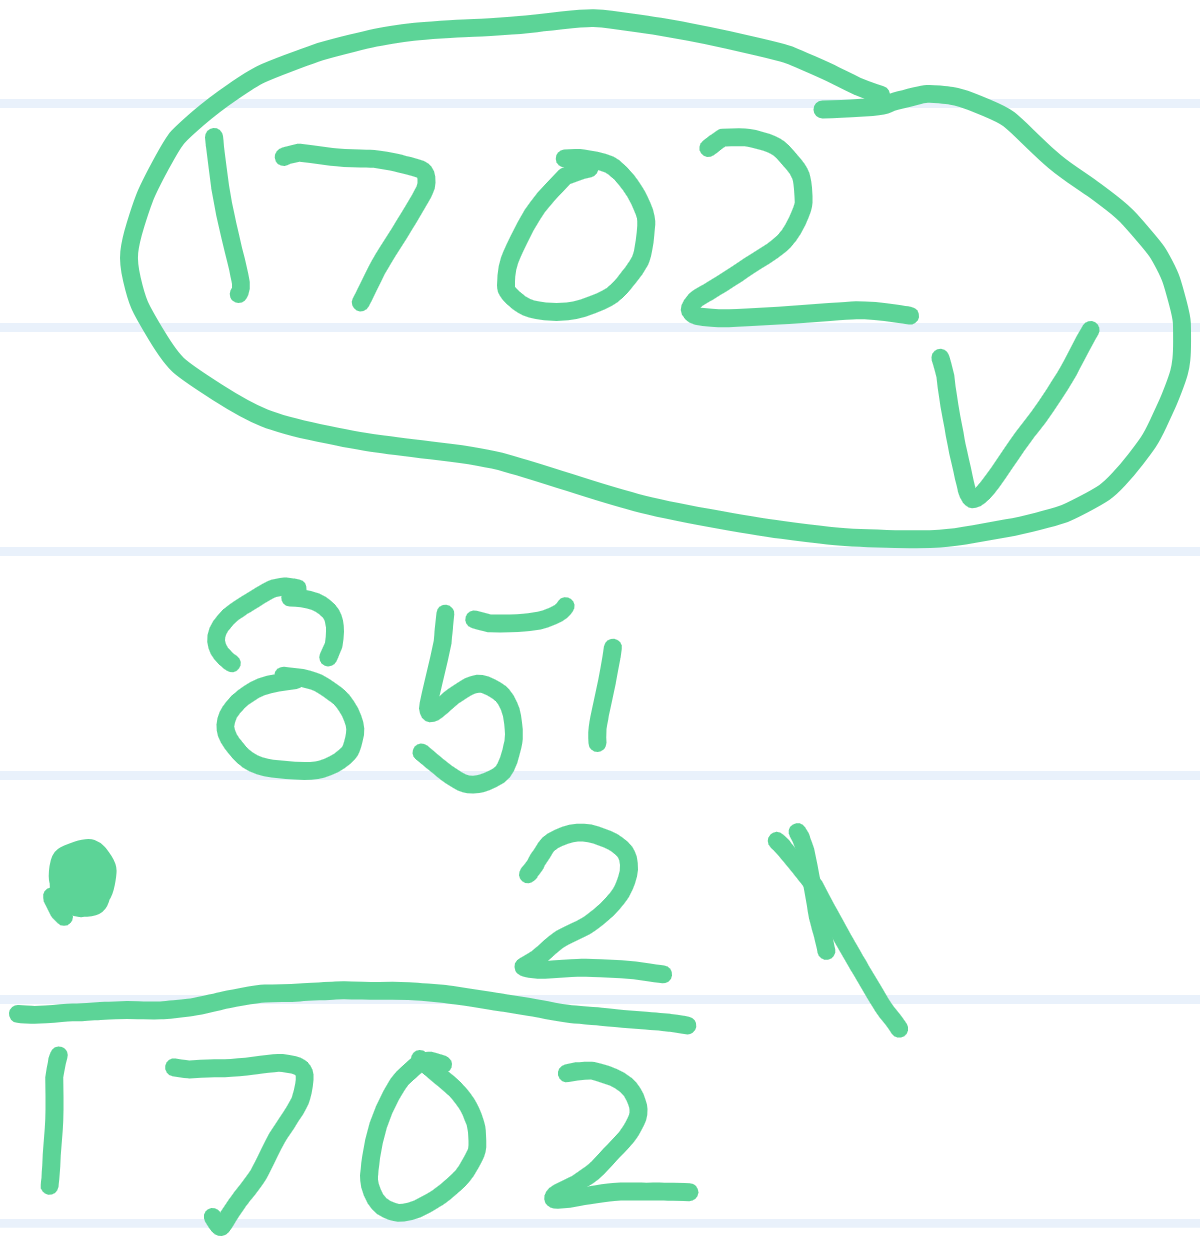 1702
V
851
2
1702